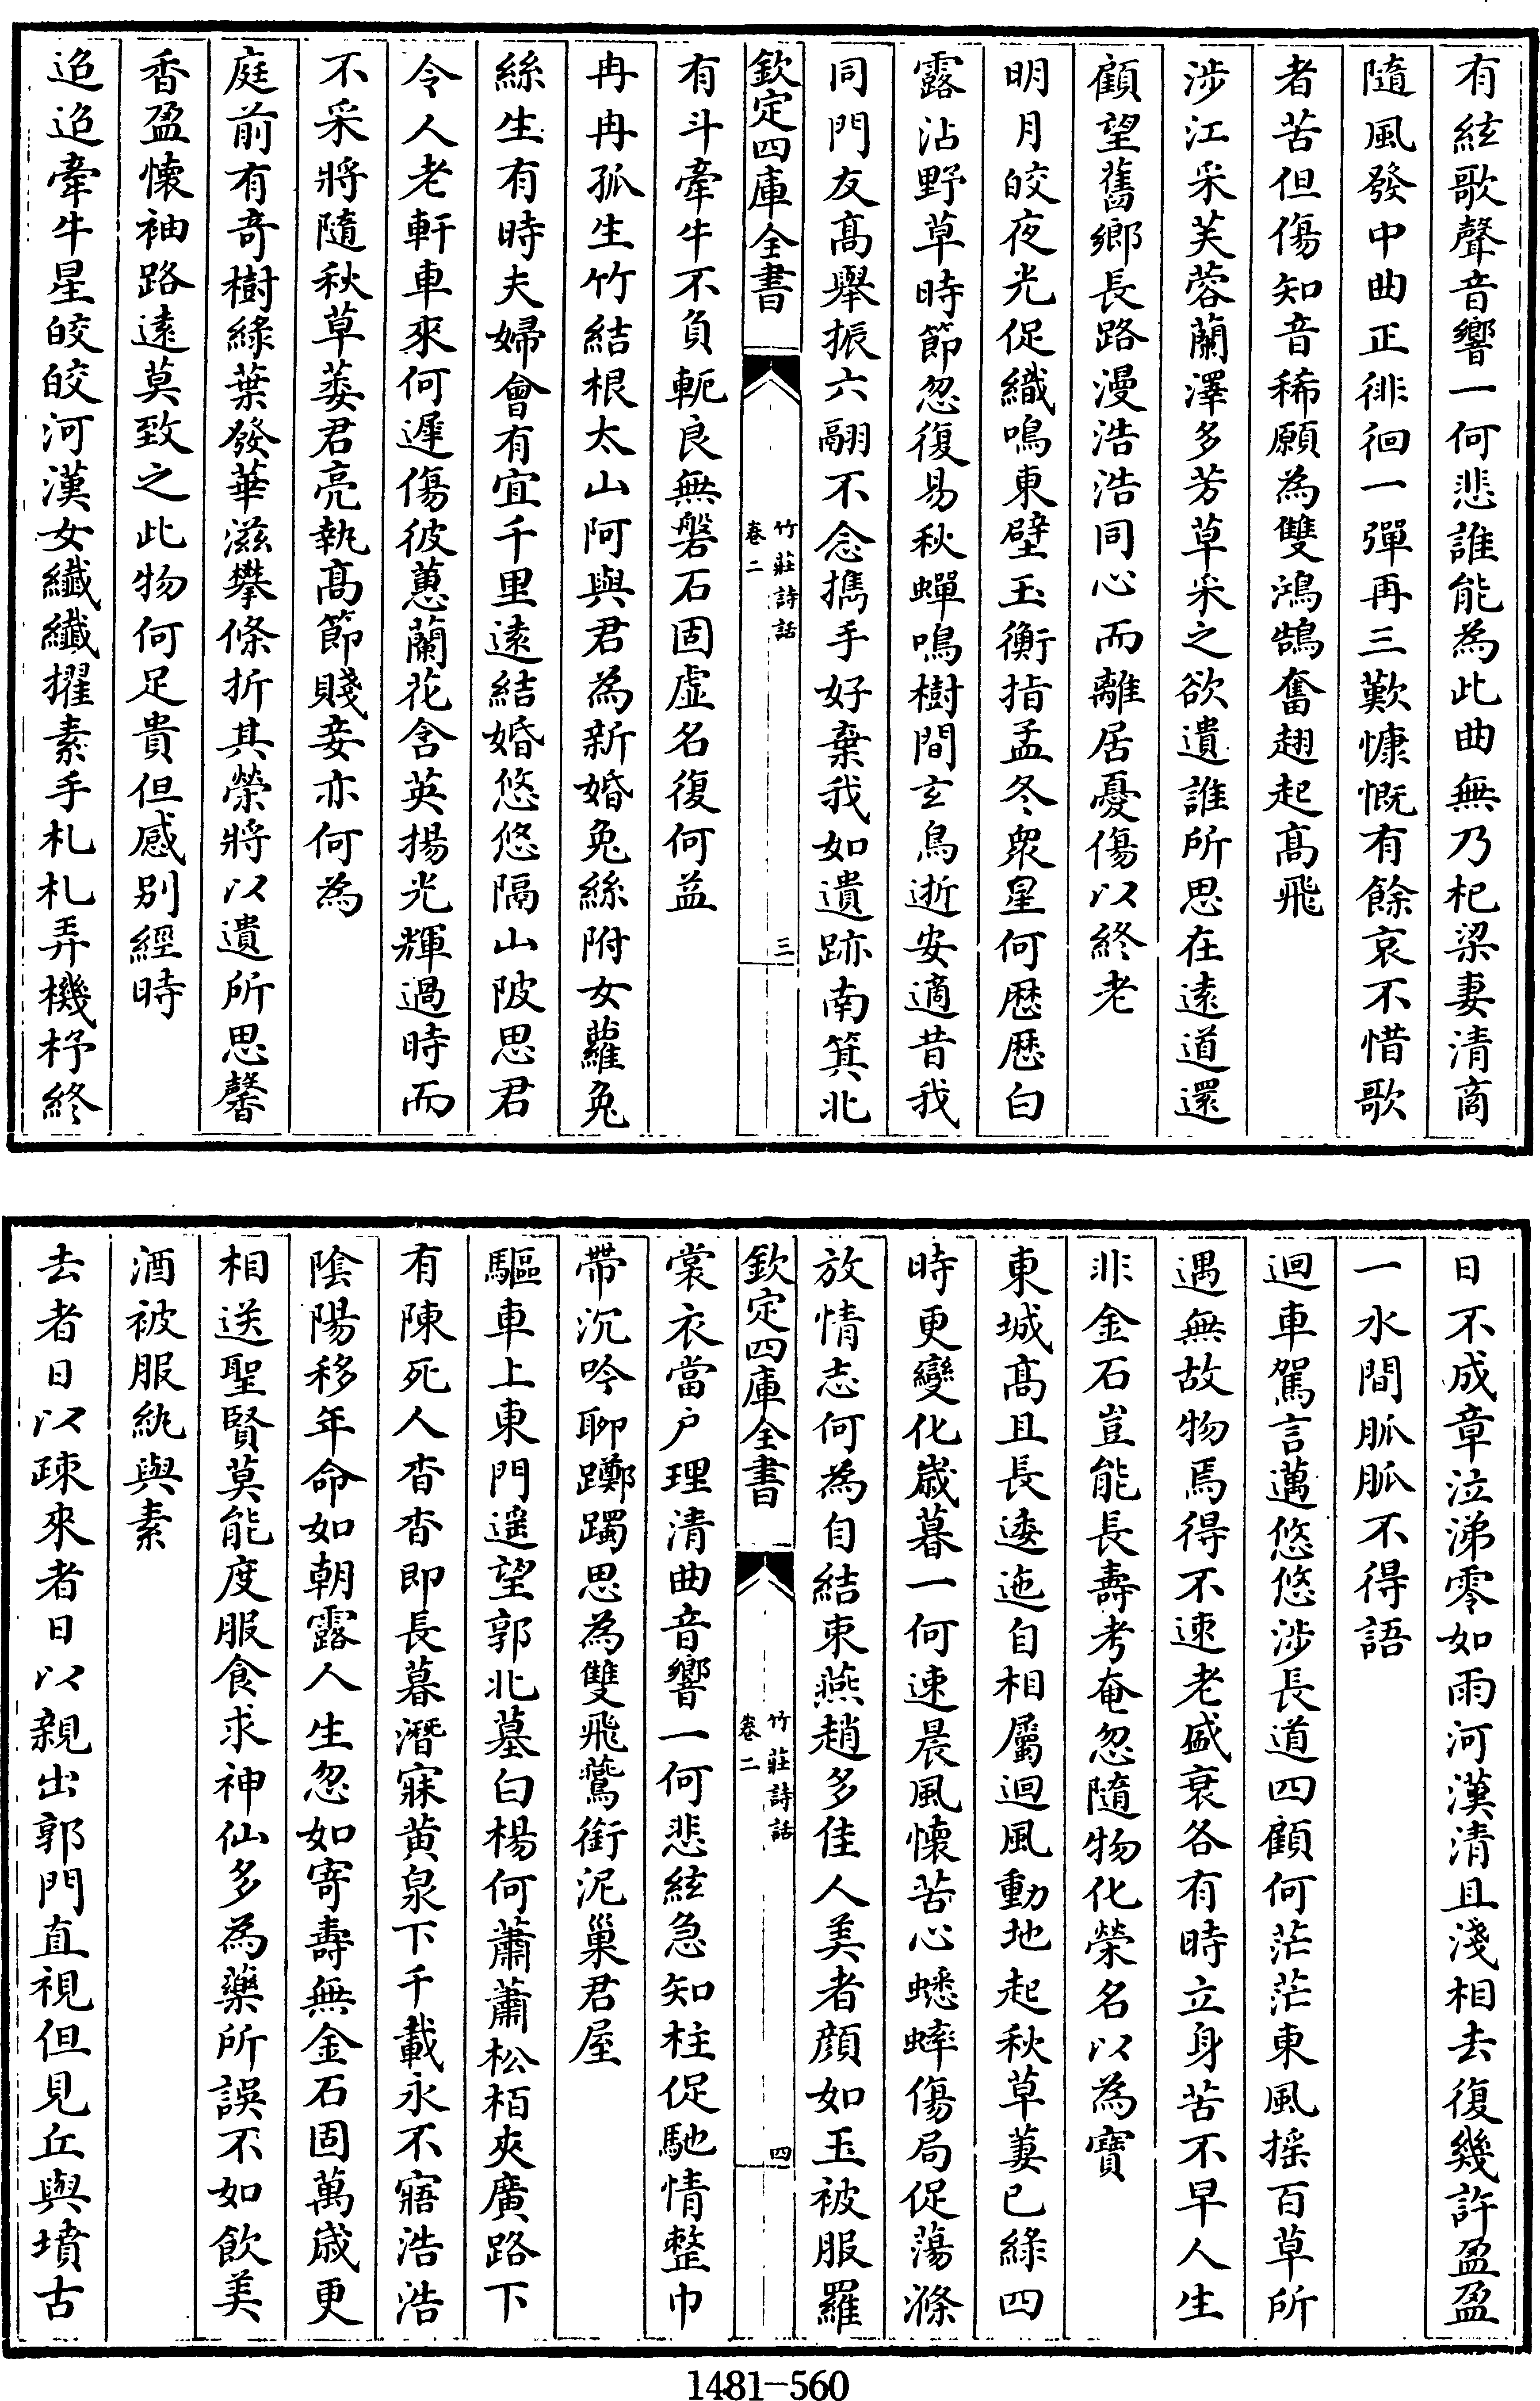 有絃歌聲音響一何悲誰能為此曲無乃杞梁妻清商
隨風發中曲正徘徊一彈再三歎慷慨有餘哀不惜歌
者苦但傷知音稀願為雙鴻鵠奮翅起高飛
涉江采芙蓉蘭澤多芳草采之欲遺誰所思在逺道還
顧望舊鄉長路漫浩浩同心而離居憂傷以終老
明月皎夜光促織鳴東壁玉衡指孟冬衆星何歴歴白
露沾野草時節忽復易秋蟬鳴樹間玄鳥逝安適昔我
同門友髙舉振六翮不念攜手好棄我如遺跡南箕北
欽定四庫全書
竹莊詩話
卷二
三
有斗牽牛不負軛良無磐石固虚名復何益
冉冉孤生竹結根太山阿與君為新婚兔絲附女蘿兔
絲生有時夫婦會有宜千里逺結婚悠悠隔山陂思君
令人老軒車來何遲傷彼蕙蘭花含英揚光輝過時而
不采將隨秋草萎君亮執髙節賤妾亦何為
庭前有奇樹綠葉發華滋攀條折其榮將以遺所思馨
香盈懐袖路逺莫致之此物何足貴但感别經時
迢迢牽牛星皎皎河漢女纖纖擢素手札札弄機杼終
日不成章泣涕零如雨河漢清且淺相去復幾許盈盈
一水間脈脈不得語
迴車駕言邁悠悠涉長道四顧何茫茫東風揺百草所
遇無故物焉得不速老盛衰各有時立身苦不早人生
非金石豈能長壽考奄忽隨物化榮名以為寶
東城髙且長逶迤自相屬迴風動地起秋草萋已綠四
時更變化嵗暮一何速晨風懐苦心蟋蟀傷局促蕩滌
放情志何為自結束燕趙多佳人美者顔如玉被服羅
欽定四庫全書
竹莊詩話
卷二
四
裳衣當户理清曲音響一何悲絃急知柱促馳情整巾
帶沉吟聊躑躅思為雙飛鷰銜泥巢君屋
驅車上東門遥望郭北墓白楊何蕭蕭松栢夾廣路下
有陳死人杳杳即長暮潛寐黄泉下千載永不寤浩浩
陰陽移年命如朝露人生忽如寄壽無金石固萬嵗更
相送聖賢莫能度服食求神仙多為藥所誤不如飲美
酒被服紈與素
去者日以疎來者日以親出郭門直視但見丘與墳古
1481-560